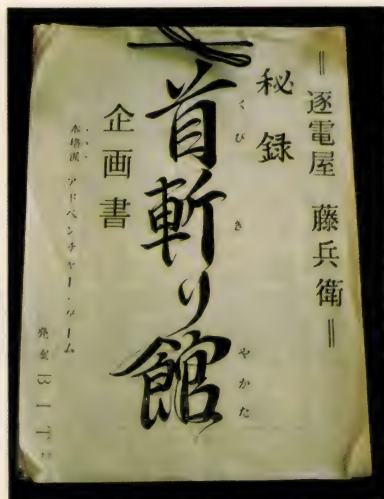 ＝逐電屋　藤兵衛＝
秘録
首斬り館
くびき　やかた
企画書
本格派　アドベンチャー・ゲーム